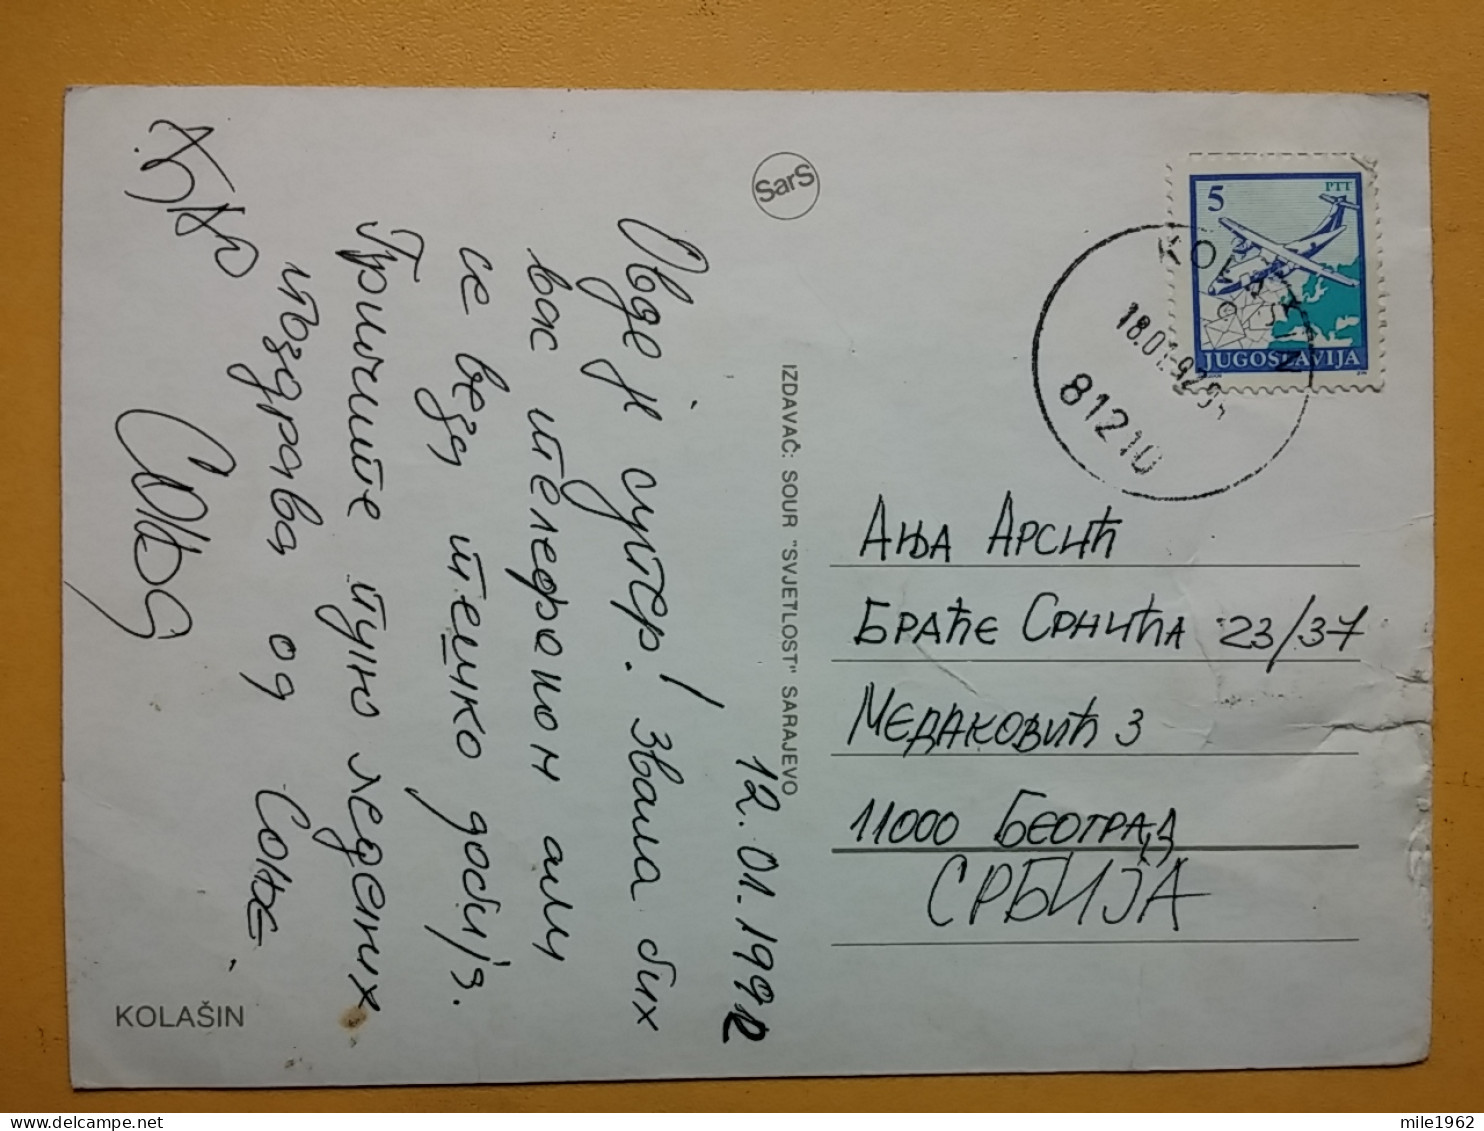 SarS
12.01.1992
Овде је супер! Звала бих
вас телефоном али
се веза тешко добија.
Примите пуно ледених
поздрава од Соње,
Соња
KOLAŠIN
IZDAVAČ: SOUR "SVJETLOST" SARAJEVO
5
PTT
JUGOSLAVIJA
KOLAŠIN
18.01.92
81210
Ања Арсић
Браће Срнића 23/37
Медаковић 3
11000 Београд
СРБИЈА
mile1962